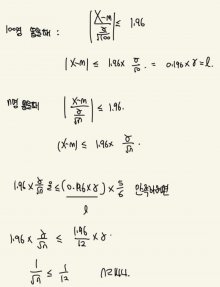 100명 뽑을때 : |X-m / (σ/√100)| ≤ 1.96
|X-m| ≤ 1.96 × σ/10 = 0.196 × σ = l.
n명 뽑을때 |X-m / (σ/√n)| ≤ 1.96.
|X-m| ≤ 1.96 × σ/√n.
1.96 × σ/√n ≤ (0.196 × σ) × 5/6 만족하려면
l
1.96 × σ/√n ≤ 1.96/12 × σ.
1/√n ≤ 1/12 n≥144.